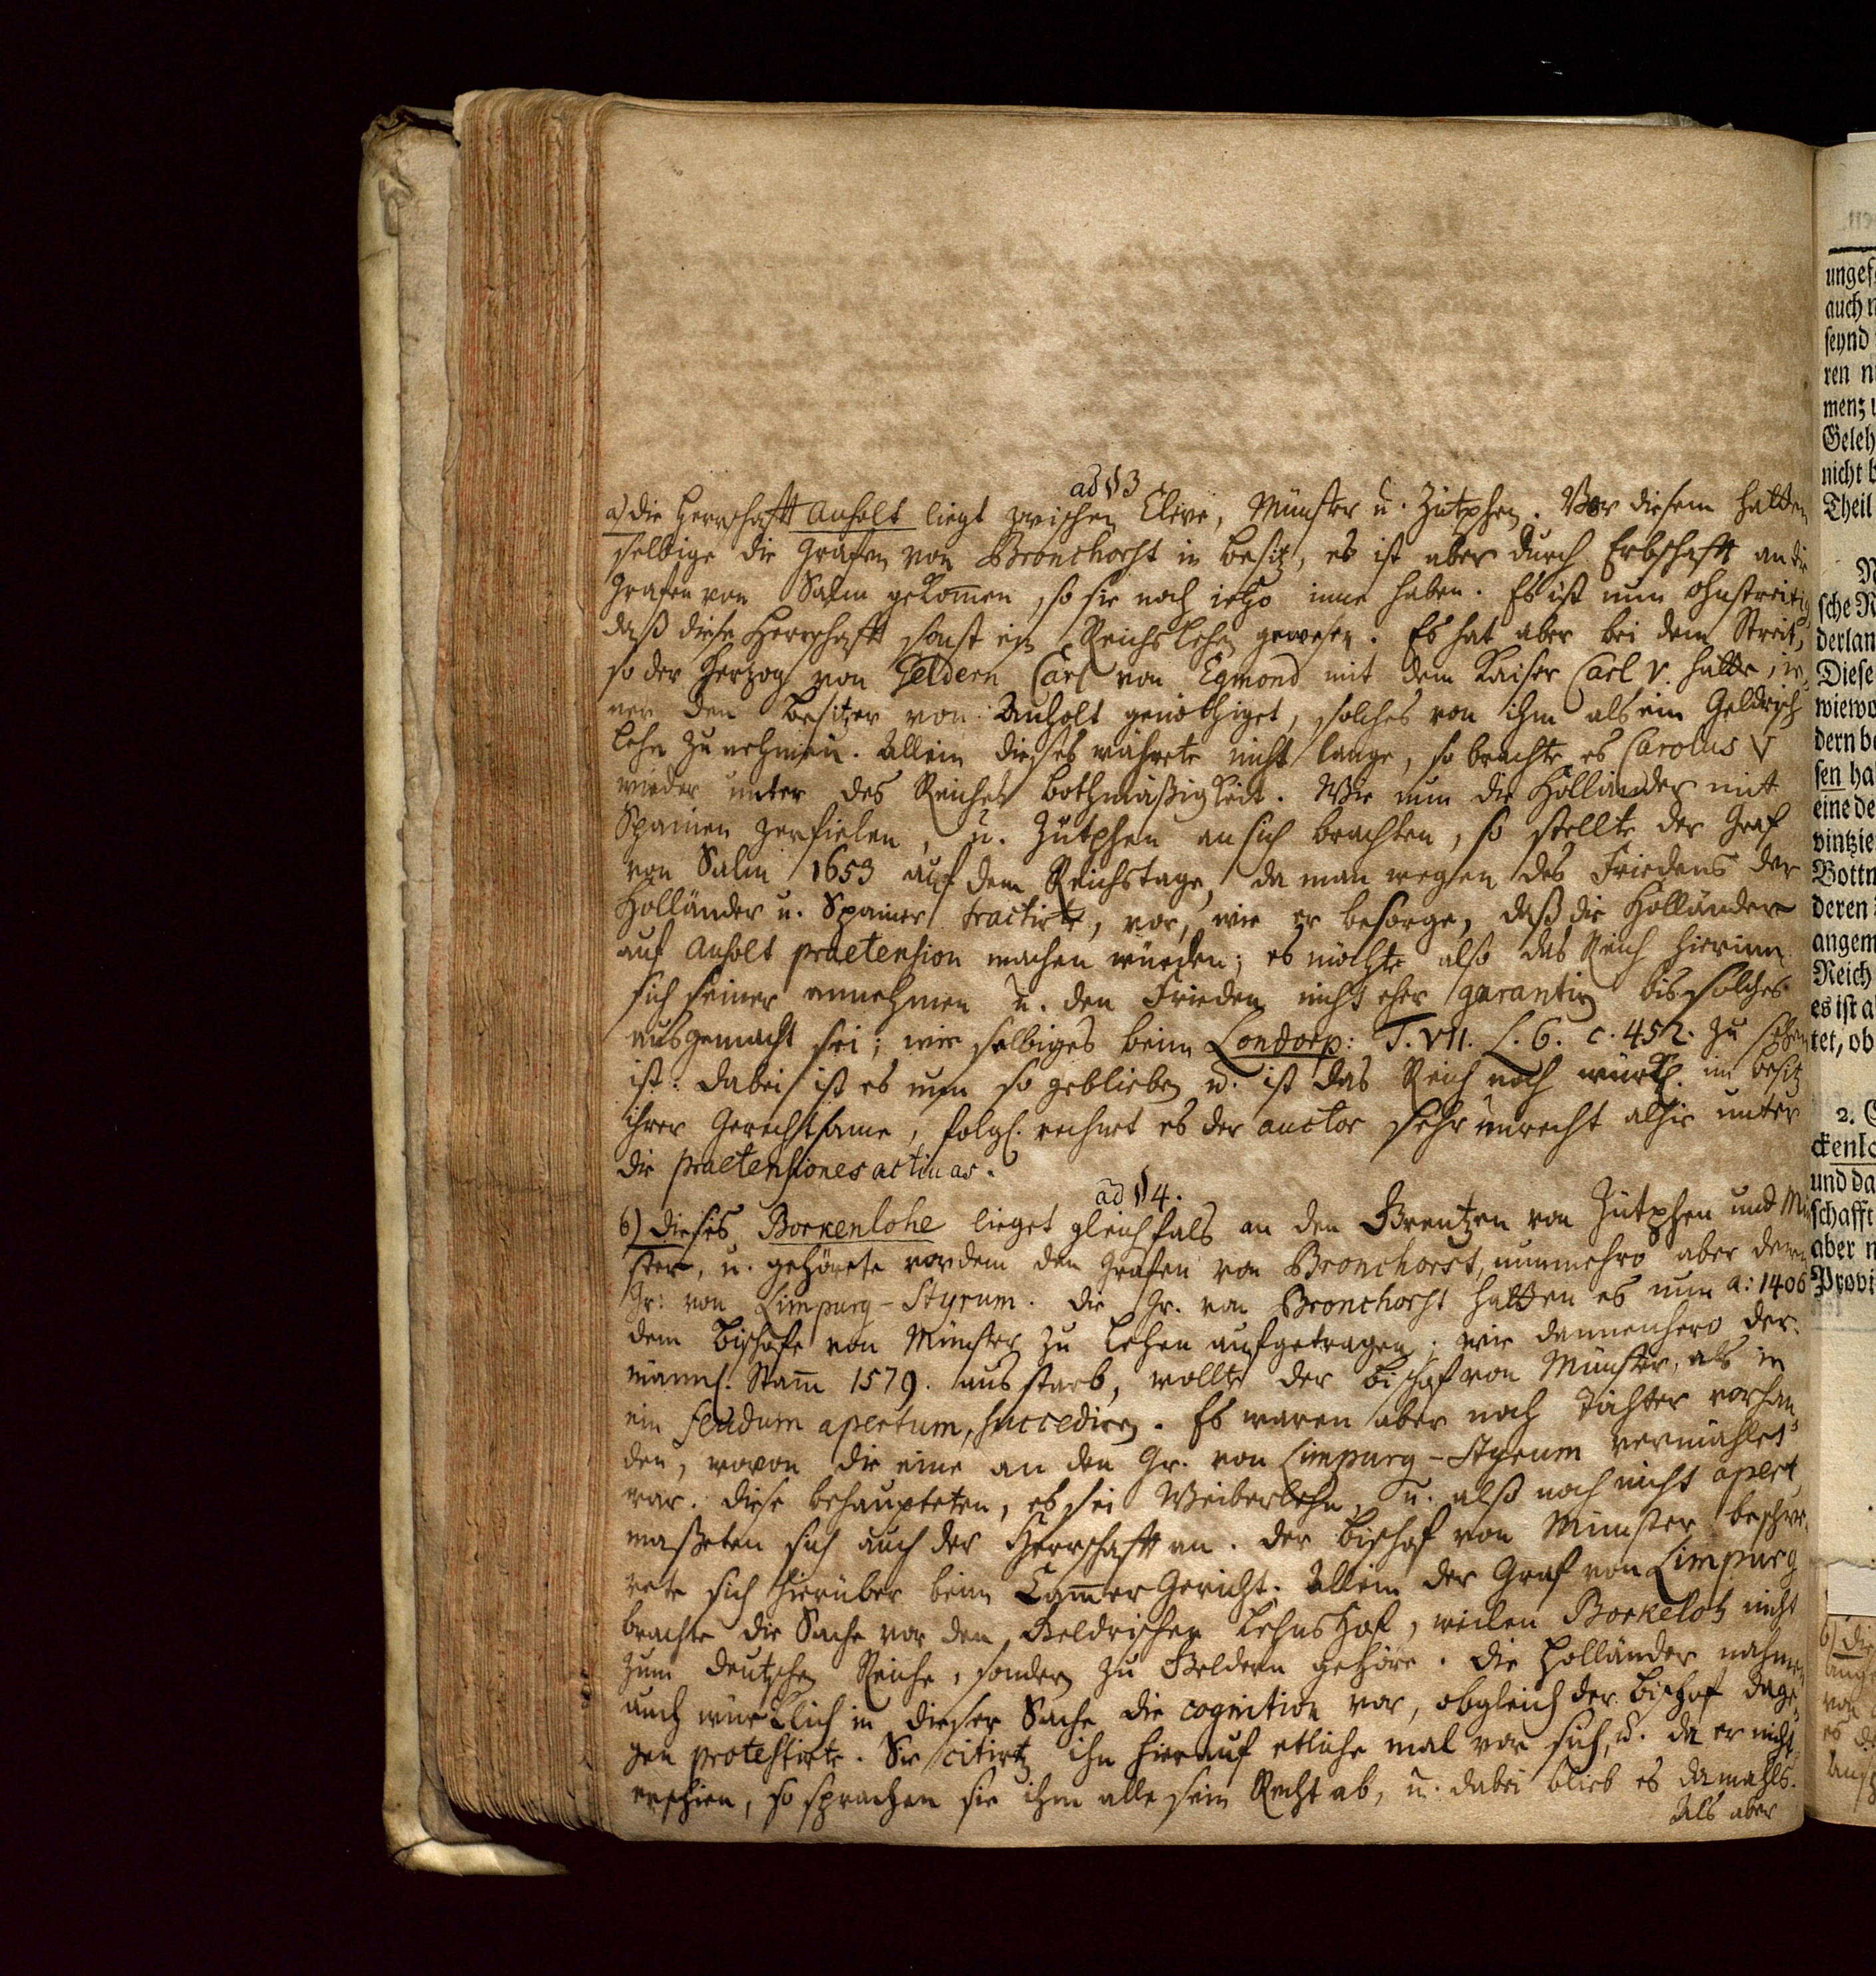 ad § 3
a) die Herrschafft Anholt liegt zwischen Cleve, Münster u. Zütphen. Vor diesem hatten
selbige die Grafen von Bronchorst in besitz, es ist aber durch Erbschafft an die
Grafen von Salm gekom̄en, so sie noch ietzo inne haben. Es ist nun ohnstreitig
daß diese Herrschafft sonst ein Reichslehn gewesen. Es hat aber bei dem Streit,
so der Herzog von Geldern Carl von Egmond mit dem Kaiser Carl V. hatte, je-
ner den besitzer von Anholt genöthiget, solches von ihm als ein Geldrisch
lehn zu nehmen. Allein dieses währete nicht lange, so brachte es Carolus V
wieder unter des Reiches bothmäßigkeit. Wie nun die Holländer mit
Spanien zerfielen, u. Zütphen an sich brachten, so stellte der Graf
von Salm 1653 auf dem Reichstage, da man wegen des Friedens der
Holländer u. Spanier tractirte, vor, wie er besorge, daß die Holländer
auf Anholt praetension machen würden; es möchte also das Reich hierinn
sich seiner annehmen u. den Frieden nicht eher garantiren bis solches
ausgemacht sei; wie selbiges beim Londorp: T. VII. L. 6. c. 452. zu sehen
ist. dabei ist es nun so geblieben u. ist das Reich noch würkl. im besitz
ihrer Gerechtsame, folgl. rechnet es der auctor sehr unrecht alhie unter
die praetensiones activas.
ad § 4.
b) dieses Borkenlohe lieget gleichfals an den Grentzen von Zütphen und Mün
ster, u. gehörete vordem den Grafen von Bronchorst, nunmehro aber denen
Gr: von Limpurg-Styrum. die Gr. von Bronchorst hatten es nun a: 1406
dem bischofe von Münster zu lehen aufgetragen; wie dannenhero der
männl. Stam̄ 1579. ausstarb, wollte der bischof von Münster, als in
ein feudum apertum, succediren. Es waren aber noch Töchter vorhan
den, wovon die eine an den Gr. von Limpurg-Styrum vermählet
war. diese behaupteten, es sei Weiberlehn, u. alß noch nicht apert
maßeten sich auch der Herrschafft an. der bischof von Münster beschwe
rete sich hierüber beim Cam̄er Gericht. Allein der Graf von Limpurg
brachte die Sache vor den Geldrischen Lehnshof, weilen Borkeloh nicht
zum deutschen Reiche, sondern zu Geldern gehöre. die Holländer nahmen
auch würklich in dieser Sache die cognition vor, obgleich der bischof dage-
gen protestirte. Sie citirten ihn hierauf etliche mal vor sich, u. da er nicht
erschien, so sprachen sie ihm alle sein Recht ab, u. dabei blieb es damahls.
Als aber
ungef
auch n
seynd
ren n
mentz
Geleh
nicht b
Theil
sche R
derlan
Diese
wiewo
dern b
sen ha
eine de
vintzie
Bottm
deren
angem
Reich
es ist a
tet, ob
2.
ckenlo
und da
schafft
aber n
Provi
b) die